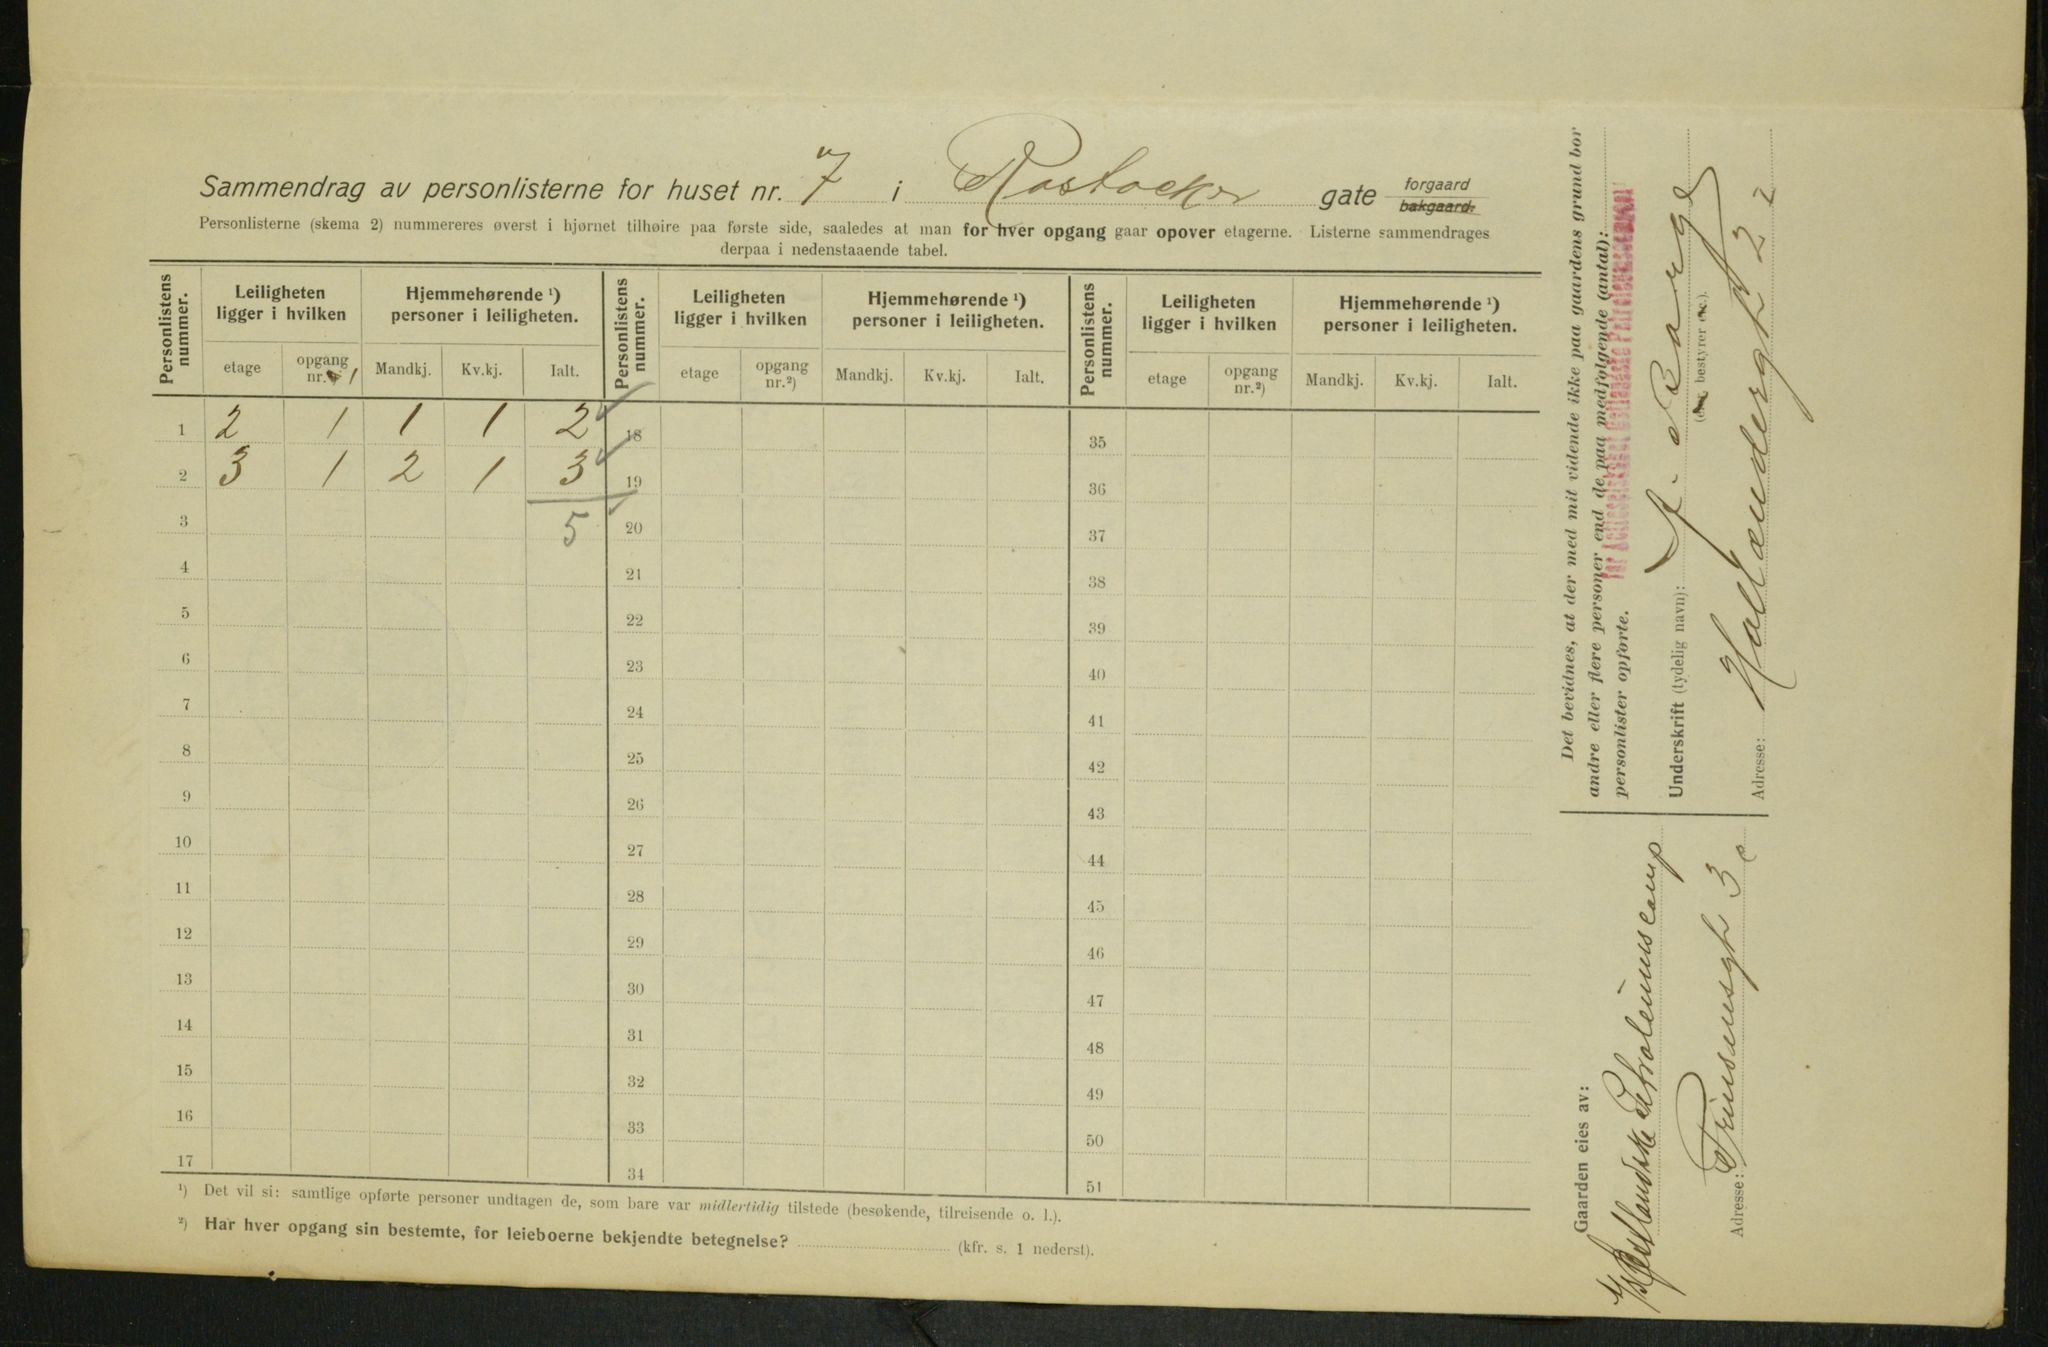 Sammendrag av personlisterne for huset nr. 7 i Rostocker gate forgaard bakgaard.
Personlisterne (skema 2) nummereres øverst i hjørnet tilhøire paa første side, saaledes at man for hver opgang gaar opover etagerne. Listerne sammendrages
derpaa i nedenstaaende tabel.
Personlistens nummer. Leiligheten ligger i hvilken Hjemmehørende ¹) personer i leiligheten. Personlistens nummer. Leiligheten ligger i hvilken Hjemmehørende ¹) personer i leiligheten. Personlistens nummer. Leiligheten ligger i hvilken Hjemmehørende ¹) personer i leiligheten.
etage opgang nr. 1 Mandkj. Kv.kj. Ialt. etage opgang nr.²) Mandkj. Kv.kj. Ialt. etage opgang nr.²) Mandkj. Kv.kj. Ialt.
1 2 1 1 1 2 ✓ 18 35
2 3 1 2 1 3 ✓ 19 36
3 5 ✓ 20 37
4 21 38
5 22 39
6 23 40
7 24 41
8 25 42
9 26 43
10 27 44
11 28 45
12 29 46
13 30 47
14 31 48
15 32 49
16 33 50
17 34 51
¹) Det vil si: samtlige opførte personer undtagen de, som bare var midlertidig tilstede (besøkende, tilreisende o. l.).
²) Har hver opgang sin bestemte, for leieboerne bekjendte betegnelse? (kfr. s. 1 nederst).
Det bevidnes, at der med mit vidende ikke paa gaardens grund bor
andre eller flere personer end de paa medfølgende (antal):
personlister opførte.
Underskrift (tydelig navn): J. Borge
(eier, bestyrer etc.).
Adresse: Hollændergt 22
Gaarden eies av:
Vestlandske Petroleumscomp
Adresse: Prinsensgt 3 c